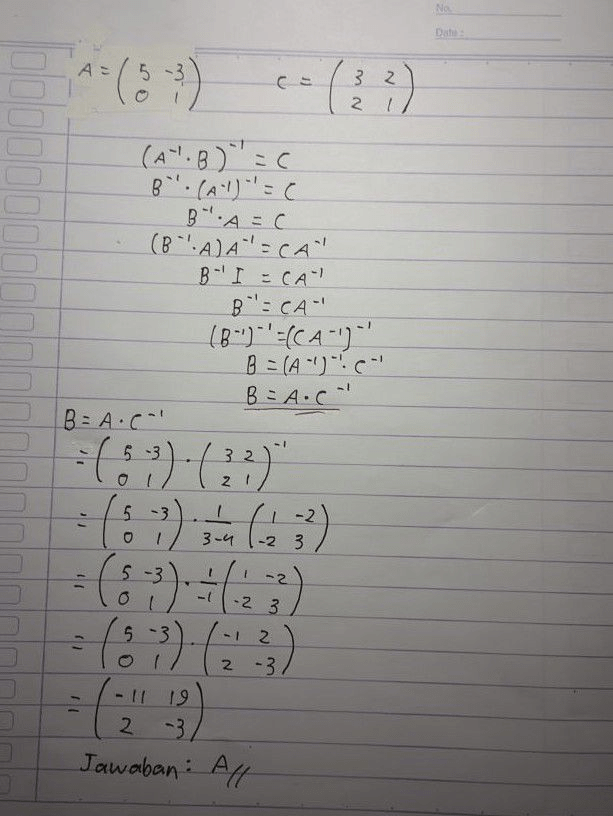 No.
Date :
A = (5 -3; 0 1) C = (3 2; 2 1)
(A⁻¹ · B)⁻¹ = C
B⁻¹ · (A⁻¹)⁻¹ = C
B⁻¹ · A = C
(B⁻¹ · A) A⁻¹ = C A⁻¹
B⁻¹ I = C A⁻¹
B⁻¹ = C A⁻¹
(B⁻¹)⁻¹ = (C A⁻¹)⁻¹
B = (A⁻¹)⁻¹ · C⁻¹
B = A · C⁻¹
B = A · C⁻¹
= (5 -3; 0 1) · (3 2; 2 1)⁻¹
= (5 -3; 0 1) · 1/(3-4) (1 -2; -2 3)
= (5 -3; 0 1) · 1/-1 (1 -2; -2 3)
= (5 -3; 0 1) · (-1 2; 2 -3)
= (-11 19; 2 -3)
Jawaban : A //